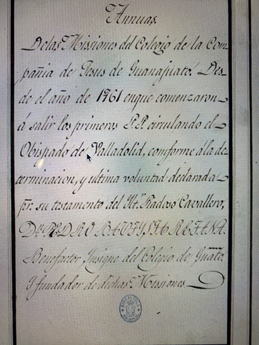 Annuas.
De las Missiones del Colegio de la Com
pañia de Jesus de Guanajuato. Des
de el año de 1761 en que comenzaron
á salir los primeros P.P. circulando el
Obispado de Valladolid, comforme á la de
terminacion, y ultima voluntad declarada
pr. su testamento del Cavallero,
Dn. PEDRO BAUTYSTA RETANA.
Benefactor Insigne del Colegio de Guato.
Y fundador de dichas Missiones